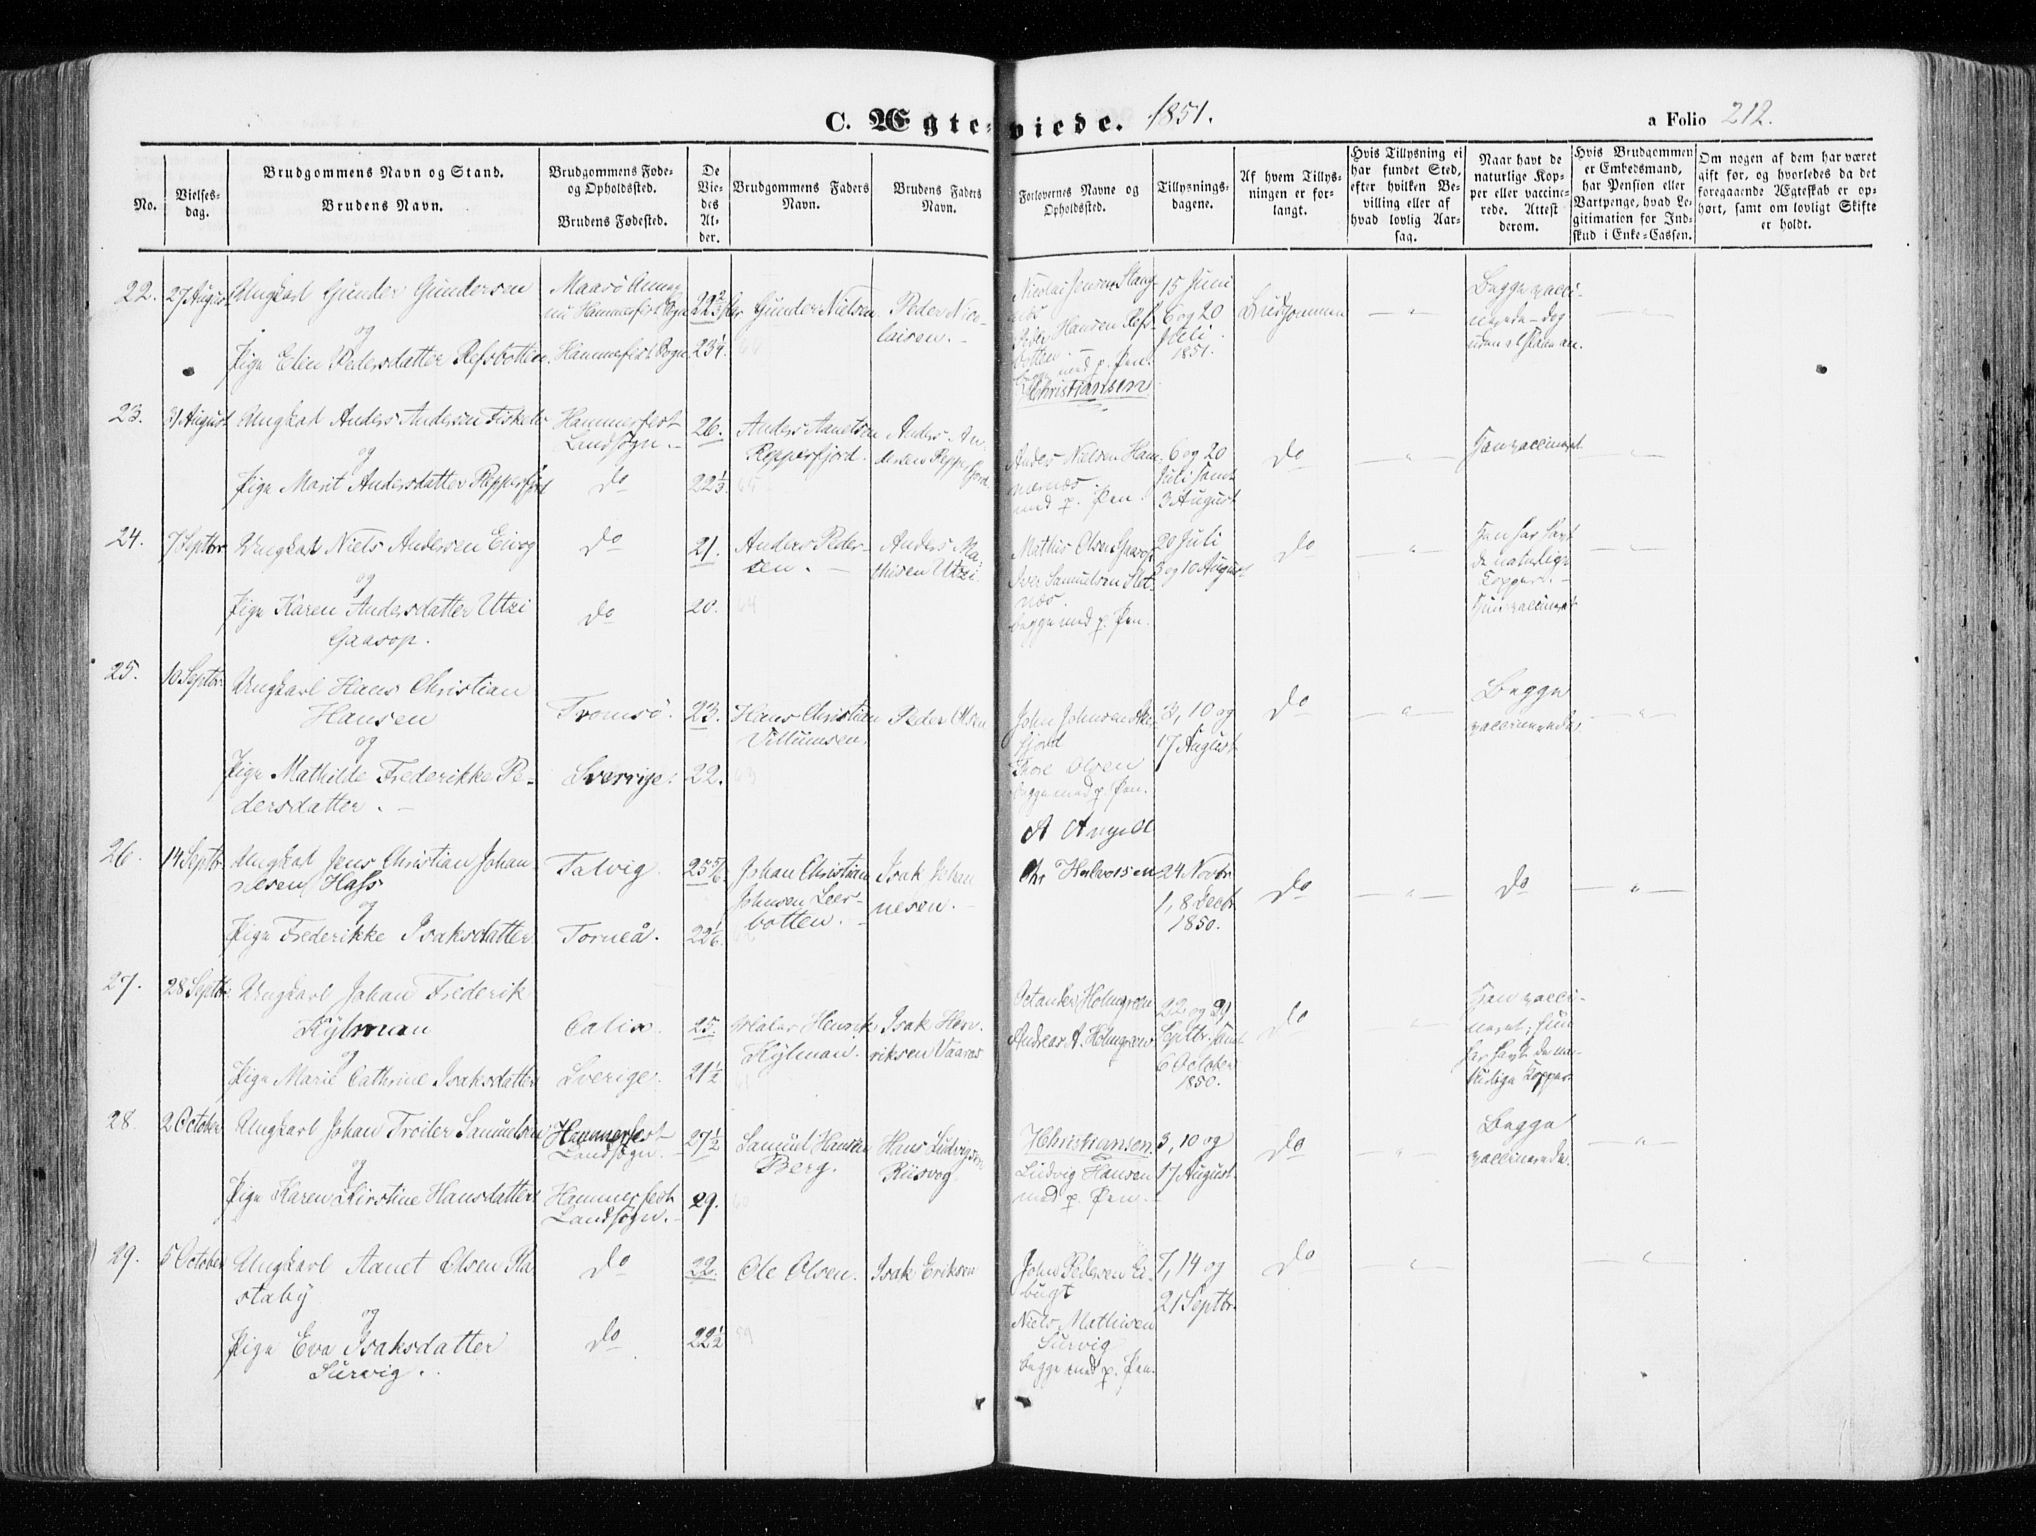 C. Ægte-viede. 1851.
a Folio 212.
No.
Vielses-
dag.
Brudgommens Navn og Stand.
Brudens Navn.
Brudgommens Føde-
og Opholdssted.
Brudens Fødested.
De
Vie-
des
Al-
der.
Brudgommens Faders
Navn.
Brudens Faders
Navn.
Forlovernes Navne og
Opholdssted.
Tillysnings-
dagene.
Af hvem Tillys-
ningen er for-
langt.
Hvis Tillysning ei
har fundet Sted,
efter hvilken Be-
villing eller af
hvad lovlig Aar-
sag.
Naar havt de
naturlige Kop-
per eller vaccine-
rede. Attest
derom.
Hvis Brudgommen
er Embedsmand,
har Pension eller
Vartpenge, hvad Le-
gitimation for Ind-
skud i Enke-Cassen.
Om nogen af dem har været
gift før, og hvorledes da det
foregaaende Ægteskab er op-
hørt, samt om lovligt Skifte
er holdt.
22.
27 August
Ungkarl Gunder Gundersen
og
Pige Elen Pedersdatter Refsbotten
Maasø
Hammerfest Sogn
Hammerfest Sogn
23 1/4.
Gunder Nielsen
Peder Nico-
laisen.
Nicolai Jensen Slang-
næs
Peder Hansen Refs-
botten
begge med p. Pen.
Christiansen
15 Juni
6 og 20
Juli
1851.
Brudgommen
Begge vacci-
nerede - dog
uden
23.
31 August
Ungkarl Anders Andersen Fiskeb.
og
Pige Marit Andersdatter Repperfjord
Hammerfest
Landsogn
do
26.
22 1/3.
Anders Aanetsen
Repperfjord.
Anders An-
dersen Repper
fjord.
Anders Nielsen Ham-
nernæs
med p. Pen
6 og 20
Juli samt
3 August
do
Han vaccineret
24.
7 Septbr
Ungkarl Niels Andersen Eivog
og
Pige Karen Andersdatter Utzi
Gaasop.
do
do
21.
20.
Anders Peder-
sen.
Anders Ma-
thisen Utzi
Mathis Olsen Gaasop
Iver Samuelsen Slet-
næs.
begge med p. Pen.
20 Juli
3 og 10 August
do
Han har havt
de naturlige
Kopper.
Hun vaccineret
25.
10 Septbr.
Ungkarl Hans Christian
Hansen
og
Pige Mathilde Frederikke Pe-
dersdatter.
Tromsø.
Sverrige.
23.
22.
Hans Christian
Villumsen.
Peder Olsen
John Johnsen
fjord
Olsen
begge med p. Pen.
3, 10 og
17 August
do
Begge
vaccinerede
26.
14 Septbr
Ungkarl Jens Christian Johan-
nesen Hass
og
Pige Frederikke Isaksdatter
Talvig.
Torneå.
25 5/6.
22 1/6.
Johan Christian
Johnsen Leer-
botten.
Isak Johan
nesen.
Chr Halvorsen
24 Novbr
1, 8 Decbr
1850.
do
do
27.
28 Septbr
Ungkarl Johan Frederik
Kylman
og
Pige Marie Cathrine Isaksdatter
Calix.
Sverige.
25.
21 1/2
Henrik
Kylman.
Isak Hen-
riksen Vaaras
Octander Holmgreen
Andreas A. Holmgreen
22 og 29
Septbr. samt
6 October
1850.
do
Han vacci-
neret, hun
har havt de na-
turlige Kopper.
28.
2 October
Ungkarl Johan Troiler Samuelsen
og
Pige Karen Kirstine Hansdatter
Hammerfest
Landsogn.
Hammerfest
Landsogn.
27 1/2
29.
Samuel Hansen
Berg.
Hans Ludvigsen
Riisvog
Christiansen.
Ludvig Hansen
med p. Pen.
3, 10 og
17 August
do
Begge
vaccinerede.
29.
5 October
Ungkarl Aanet Olsen Ra
staby
og
Pige Eva Isaksdatter
Survig.
do
do
22.
22 1/2
Ole Olsen.
Isak Eriksen
John Pedersen Ei-
bugt
Niels Mathisen
Survig
begge med p. Pen.
7, 14 og
21 Septbr.
do